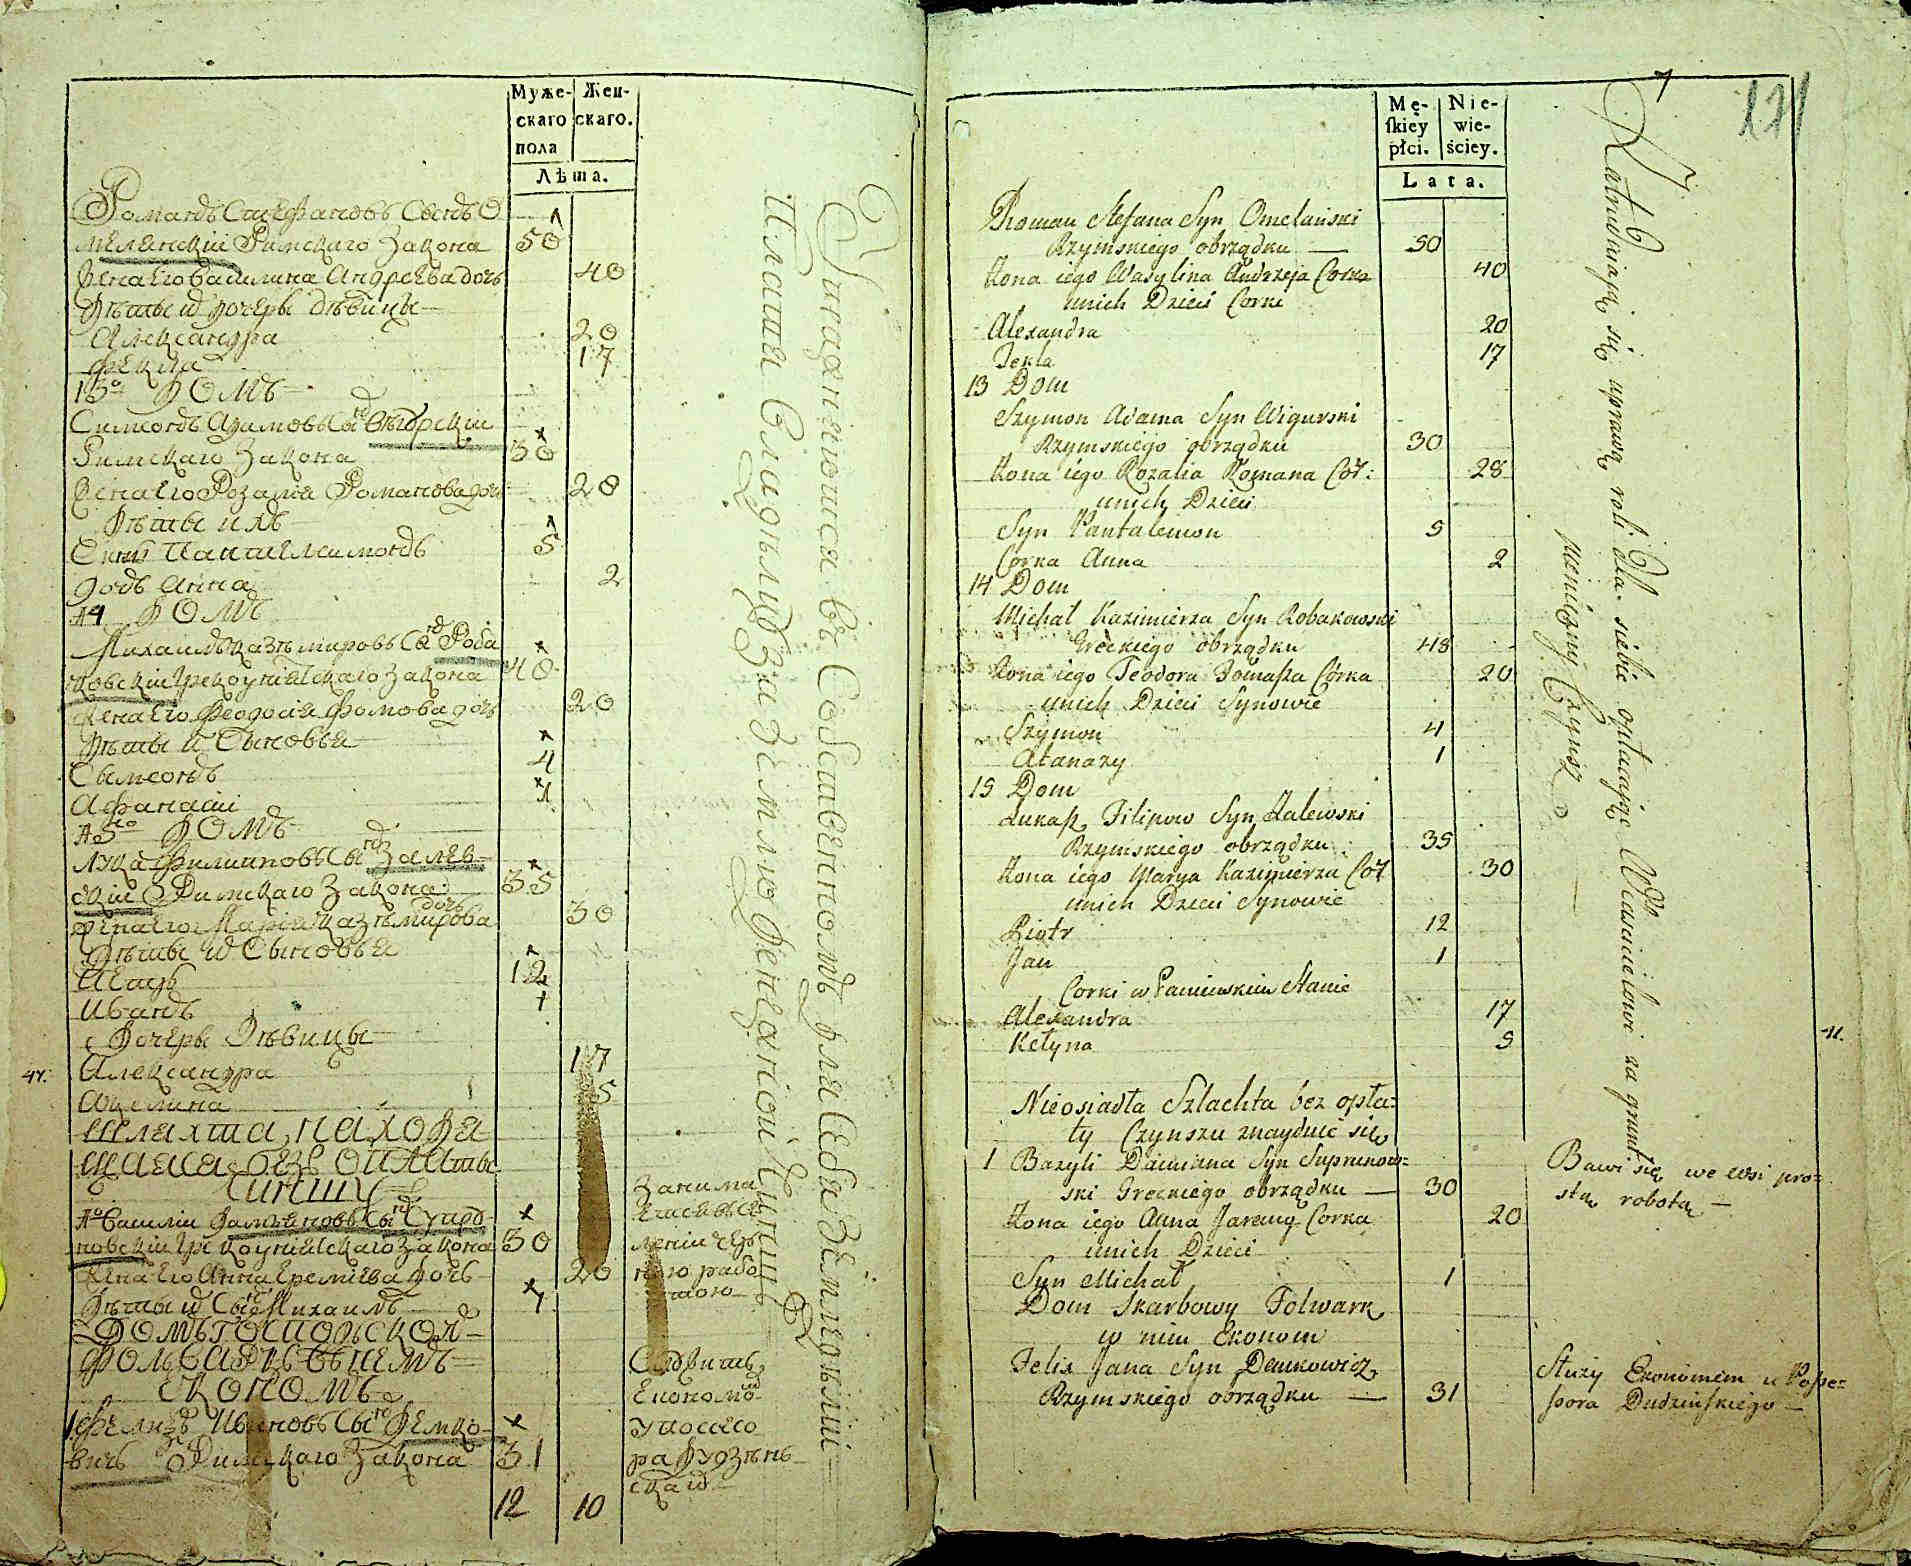 Муже-
скаго
пола
Жен-
скаго.
Лѣта.
Романъ Стефановъ Сынъ О
меленскій Римскаго Закона 50
Жена его Василина Андреева дочь 40
Дѣти ихъ дочери дѣвицы
Александра 20
Фекла 17
13о ДОМЪ
Симеонъ Адамовъ Сынъ Вѣгурскій
Римскаго Закона 30
Жена его Розалія Романова дочь 28
Дѣти ихъ
Синъ Пантелеимонъ 5
дочь Анна 2
14 ДОМЪ
Михаилъ Казѣмировъ Сынъ Роба
ковскій Грекоуніятскаго Закона 48
Жена его Феодосія Фомова дочь 20
Дѣти ихъ Сыновья
Сымеонъ 4
Афанасій 1
15го ДОМЪ
Лука Филиповъ Сынъ Залев-
скій Римскаго Закона 35
Жена его Марія Казѣмирова дочь 30
Дѣти ихъ Сыновья
Петръ 12
Иванъ 1
Дочеры Дѣвицы
Александра 17
5
Шляхта, находя
щаяся безъ оплаты
Чиншу
Василій Даміановъ Сынъ Супро-
новскій Грекоуніятскаго Закона 30
Жена его Анна Еремѣева дочь 20
Дѣти ихъ Сынъ Михаилъ 1
ДОМЪ Господьской
Фольварокъ въ немъ
Економъ
1. Феликсъ Ивановъ Сынъ Демко-
вичъ Римскаго Закона 31
12 10
47.
Упражняются въ Составеномъ для Себя Земледѣліи
Плата Владѣлцу за землю денежной Чиншъ
Занима
рабо
тою
Служитъ
Економомъ
у посесо
ра Дудзѣнь
скаго
7
121
Mę-
skiey
płci.
Nie-
wie-
ściey.
Lata.
Roman Stefana Syn Omelański
Rzymskiego obrządku — 50
Żona iego Wasylina Andrzeja Corka 40
unich Dzieci Corki
Alexandra 20
Tekla 17
13 Dom
Szymon Adama Syn Wigurski
Rzymskiego obrządku 30
Żona iego Rozalia Romana Cór: 28
unich Dzieci
Syn Pantalemon 5
Corka Anna 2
14 Dom
Michał Kazimierza Syn Robakowski
Greckiego obrządku 48
Żona iego Teodora Tomasza Córka 20
unich Dzieci Synowie
Szymon 4
Atanazy 1
15 Dom
Łukasz Filipow Syn Zalewski
Rzymskiego obrządku 35
Żona iego Marya Kazimierza Cór 30
unich Dzieci Synowie
Piotr 12
Jan 1
Corki w Panieńskim Stanie
Alexandra 17
Kelyna 5
Nieosiadła Szlachta bez opła-
ty Czynszu znayduie się
1 Bazyli Damiana Syn Suprunow-
ski Greckiego obrządku — 30
Żona iego Anna Jaremy Corka 20
unich Dzieci
Syn Michał 1
Dom Skarbowy Folwark
w nim Ekonom
Felix Jana Syn Demkowicz
Rzymskiego obrządku — 31
Zatrudniają się uprawą roli dla siebie opłacając Właścicielowi za grunt
pieniężny Czynsz
11.
Bawi się we wsi pro-
stą robotą —
Służy Ekonomem u Posse-
sora Dudzińskiego —